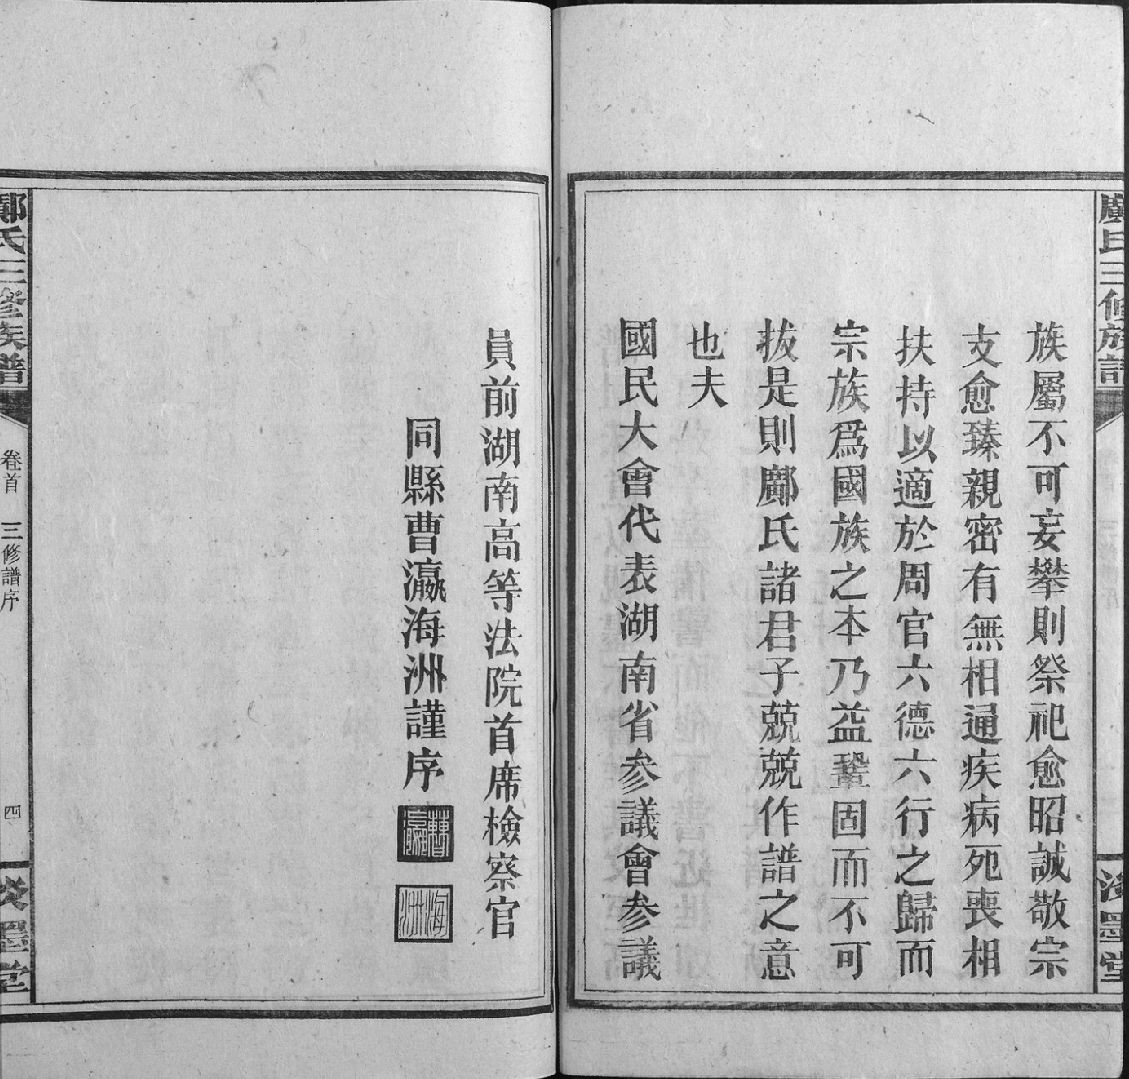 族屬不可妄攀則祭祀愈昭誠敬宗
支愈臻親密有無相通疾病死喪相
扶持以適於周官六德六行之歸而
宗族爲國族之本乃益鞏固而不可
拔是則鄺氏諸君子兢兢作譜之意
也夫
國民大會代表湖南省參議會參議
員前湖南高等法院首席檢察官
同縣曹瀛海洲謹序
曹瀛
海洲
鄺氏三修族譜
卷首 三修譜序
四
墨堂